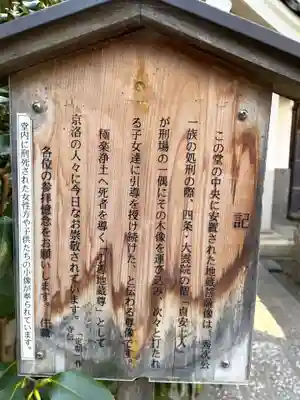 記
この堂の中央に安置された地蔵菩薩像は、秀次公
一族の処刑の際、四条・大雲院の僧「貞安上人」
が刑場の一隅にその木像を運び込み、次々と打たれ
る子女達に引導を授け続けた、と伝わる尊像です。
極楽浄土へ死者を導く「引導地蔵尊」として
京洛の人々に今日なお崇敬されています。
各位の参拝檀念をお願いします。
堂内に刑死された女性方や子供たちの小像が奉られています。